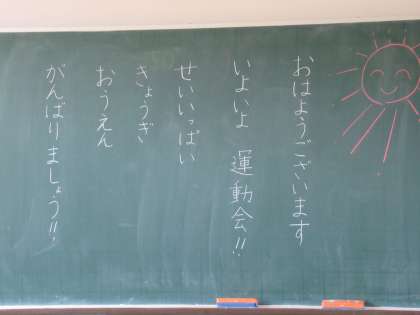 おはようございます
いよいよ 運動会!!
せいいっぱい
きょうぎ
おうえん
がんばりましょう!!